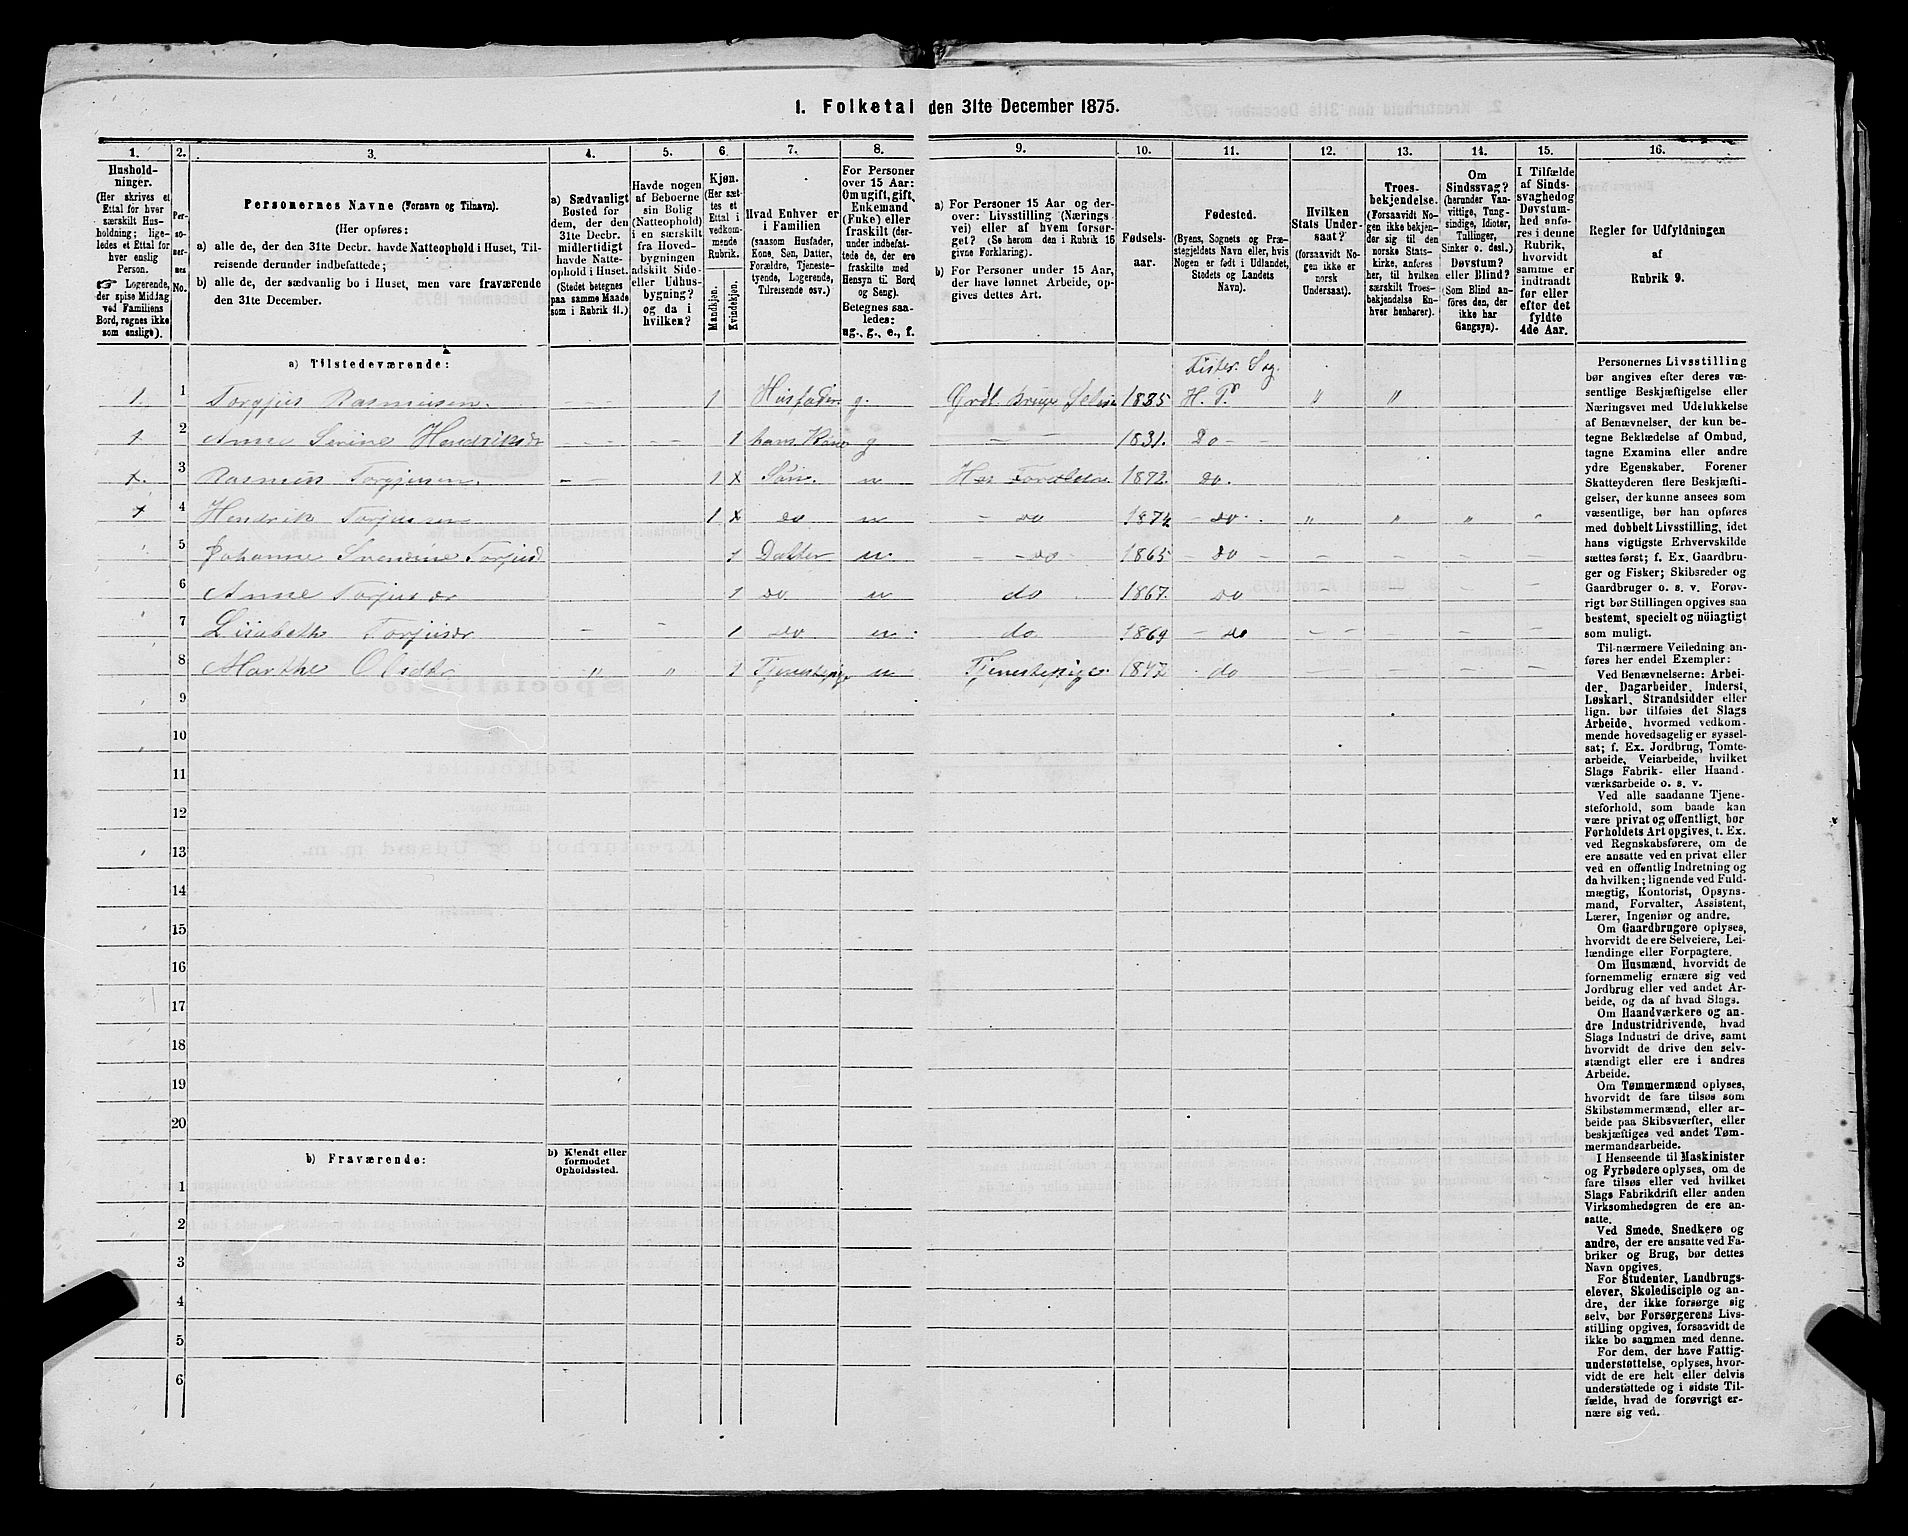 1. Folketal den 31te December 1875.
1. 2. 3. 4. 5. 6. 7. 8. 9. 10. 11. 12. 13. 14. 15. 16.
Hushold-
ninger.
(Her skrives et
Ettal for hver
særskilt Hus-
holdning; lige-
ledes et Ettal for
hver enslig
Person.
☞ Logerende,
der spise Middag
ved Familiens
Bord, regnes ikke
som enslige).
Per-
so-
ner-
nes
No.
Personernes Navne (Fornavn og Tilnavn).
(Her opføres:
a) alle de, der den 31te Decbr. havde Natteophold i Huset, Til-
reisende derunder indbefattede;
b) alle de, der sædvanlig bo i Huset, men vare fraværende
den 31te December.
a) Sædvanligt
Bosted for
dem, der den
31te Decbr.
midlertidigt
havde Natte-
ophold i Huset.
(Stedet betegnes
paa samme Maade
som i Rubrik 11.)
Havde nogen
af Beboerne
sin Bolig
(Natteophold)
i en særskilt
fra Hoved-
bygningen
adskilt Side-
eller Udhus-
bygning?
og da i
hvilken?
Kjøn.
(Her sæt-
tes et
Ettal i
vedkom-
mende
Rubrik.
Mandkjøn.
Kvindekjøn.
Hvad Enhver er
i Familien
(saasom Husfader,
Kone, Søn, Datter,
Forældre, Tjeneste-
tyende, Logerende,
Tilreisende osv.)
For Personer
over 15 Aar:
Om ugift, gift,
Enkemand
(Enke) eller
fraskilt (der-
under indbefat-
tede de, der ere
fraskilte med
Hensyn til Bord
og Seng).
Betegnes saa-
ledes:
ug., g., e., f.
a) For Personer 15 Aar og der-
over: Livsstilling (Nærings-
vei) eller af hvem forsør-
get? (Se herom den i Rubrik 16
givne Forklaring).
b) For Personer under 15 Aar,
der have lønnet Arbeide, op-
gives dettes Art.
Fødsels-
aar.
Fødested.
(Byens, Sognets og Præ-
stegjeldets Navn eller, hvis
Nogen er født i Udlandet,
Stedets og Landets
Navn).
Hvilken
Stats Under-
saat?
(forsaavidt No-
gen ikke er
norsk
Undersaat).
Troes-
bekjendelse.
(Forsaavidt No-
gen ikke bekjen-
der sig til den
norske Stats-
kirke, anføres
her, til hvilken
særskilt Troes-
bekjendelse En-
hver henhører).
Om
Sindssvag?
(herunder Van-
vittige, Tung-
sindige, Idioter,
Tullinger,
Sinker o. desl.)
Døvstum?
eller Blind?
(Som Blind an-
føres den, der
ikke har
Gangsyn).
I Tilfælde
af Sinds-
svaghed og
Døvstum-
hed anfø-
res i denne
Rubrik,
hvorvidt
samme er
indtraadt
før eller
efter det
fyldte
4de Aar.
Regler for Udfyldningen
af
Rubrik 9.
a) Tilstedeværende:
Sog.
1. 1 Torgjus Rasmusen. 1 Husfader g. 1835 H. P. " "
1. 2 Anne Serine Hendriksdr 1 hans Kone g 1831. Do
x. 3 Rasmus Torgjusen. 1 x Søn. u 1872. do.
x 4 Hendrik Torjusen 1 x do u do 1874 do. " " " "
5 Johanne Torjusd 1 Datter u. do 1865 do
6 Anne Torjusdr 1 do u do 1867. do
7 Lisabeth Torjusdr 1 do u do 1869 do
8 Marthe Olsdtr " " 1 Tjenestepige u Tjenestepige 1847 do
9
10
11
12
13
14
15
16
17
18
19
20
b) Fraværende:
b) Kjendt eller
formodet
Opholdssted.
1
2
3
4
5
6
Personernes Livsstilling
bør angives efter deres væ-
sentlige Beskjæftigelse eller
Næringsvei med Udelukkelse
af Benævnelser, der kun be-
tegne Beklædelse af Ombud,
tagne Examina eller andre
ydre Egenskaber. Forener
Skatteyderen flere Beskjæfti-
gelser, der kunne ansees som
væsentlige, bør han opføres
med dobbelt Livsstilling, idet
hans vigtigste Erhvervskilde
sættes først; f. Ex. Gaardbru-
ger og Fisker; Skibsreder og
Gaardbruger o. s. v. Forøv-
rigt bør Stillingen opgives saa
bestemt, specielt og nøiagtigt
som muligt.
Til nærmere Veiledning an-
føres her endel Exempler:
Ved Benævnelserne: Arbei-
der, Dagarbeider, Inderst,
Løskarl, Strandsidder eller
lign. bør tilføies det Slags
Arbeide, hvormed vedkom-
mende hovedsagelig er syssel-
sat; f. Ex. Jordbrug, Tomte-
arbeide, Veiarbeide, hvilket
Slags Fabrik- eller Haand-
værksarbeide o. s. v.
Ved alle saadanne Tjene-
steforhold, som baade kan
være privat og offentligt, bør
Forholdets Art opgives, t. Ex.
ved Regnskabsførere, om de
ere ansatte ved en privat eller
ved en offentlig Indretning og
da hvilken; lignende ved Fuld-
mægtig, Kontorist, Opsyns-
mand, Forvalter, Assistent,
Lærer, Ingeniør og andre.
Om Gaardbrugere oplyses,
hvorvidt de ere Selveiere, Lei-
lændinge eller Forpagtere.
Om Husmænd, hvorvidt de
fornemmelig ernære sig ved
Jordbrug eller ved andet Ar-
beide, og da af hvad Slags.
Om Haandværkere og an-
dre Industridrivende, hvad
Slags Industri de drive, samt
hvorvidt de drive den selv-
stændigt eller ere i andres
Arbeide.
Om Tømmermænd oplyses,
hvorvidt de fare tilsøs som
Skibstømmermænd, eller ar-
beide paa Skibsværfter, eller
beskjæftiges ved andet Tøm-
mermandarbeide.
I Henseende til Maskinister
og Fyrbødere oplyses, om de
fare tilsøs eller ved hvilket
Slags Fabrikdrift eller anden
Virksomhedsgren de ere an-
satte.
Ved Smede, Snedkere og
andre, der ere ansatte ved Fa-
briker og Brug, bør dettes
Navn opgives.
For Studenter, Landbrugs-
elever, Skoledisciple og an-
dre, der ikke forsørge sig
selv, bør Forsørgerens Livs-
stilling opgives, forsaavidt de
ikke bo sammen med denne.
For dem, der have Fattig-
understøttelse, oplyses, hvor-
vidt de ere helt eller delvis
understøttede og i sidste Til-
fælde, hvad de forøvrigt er-
nære sig ved.